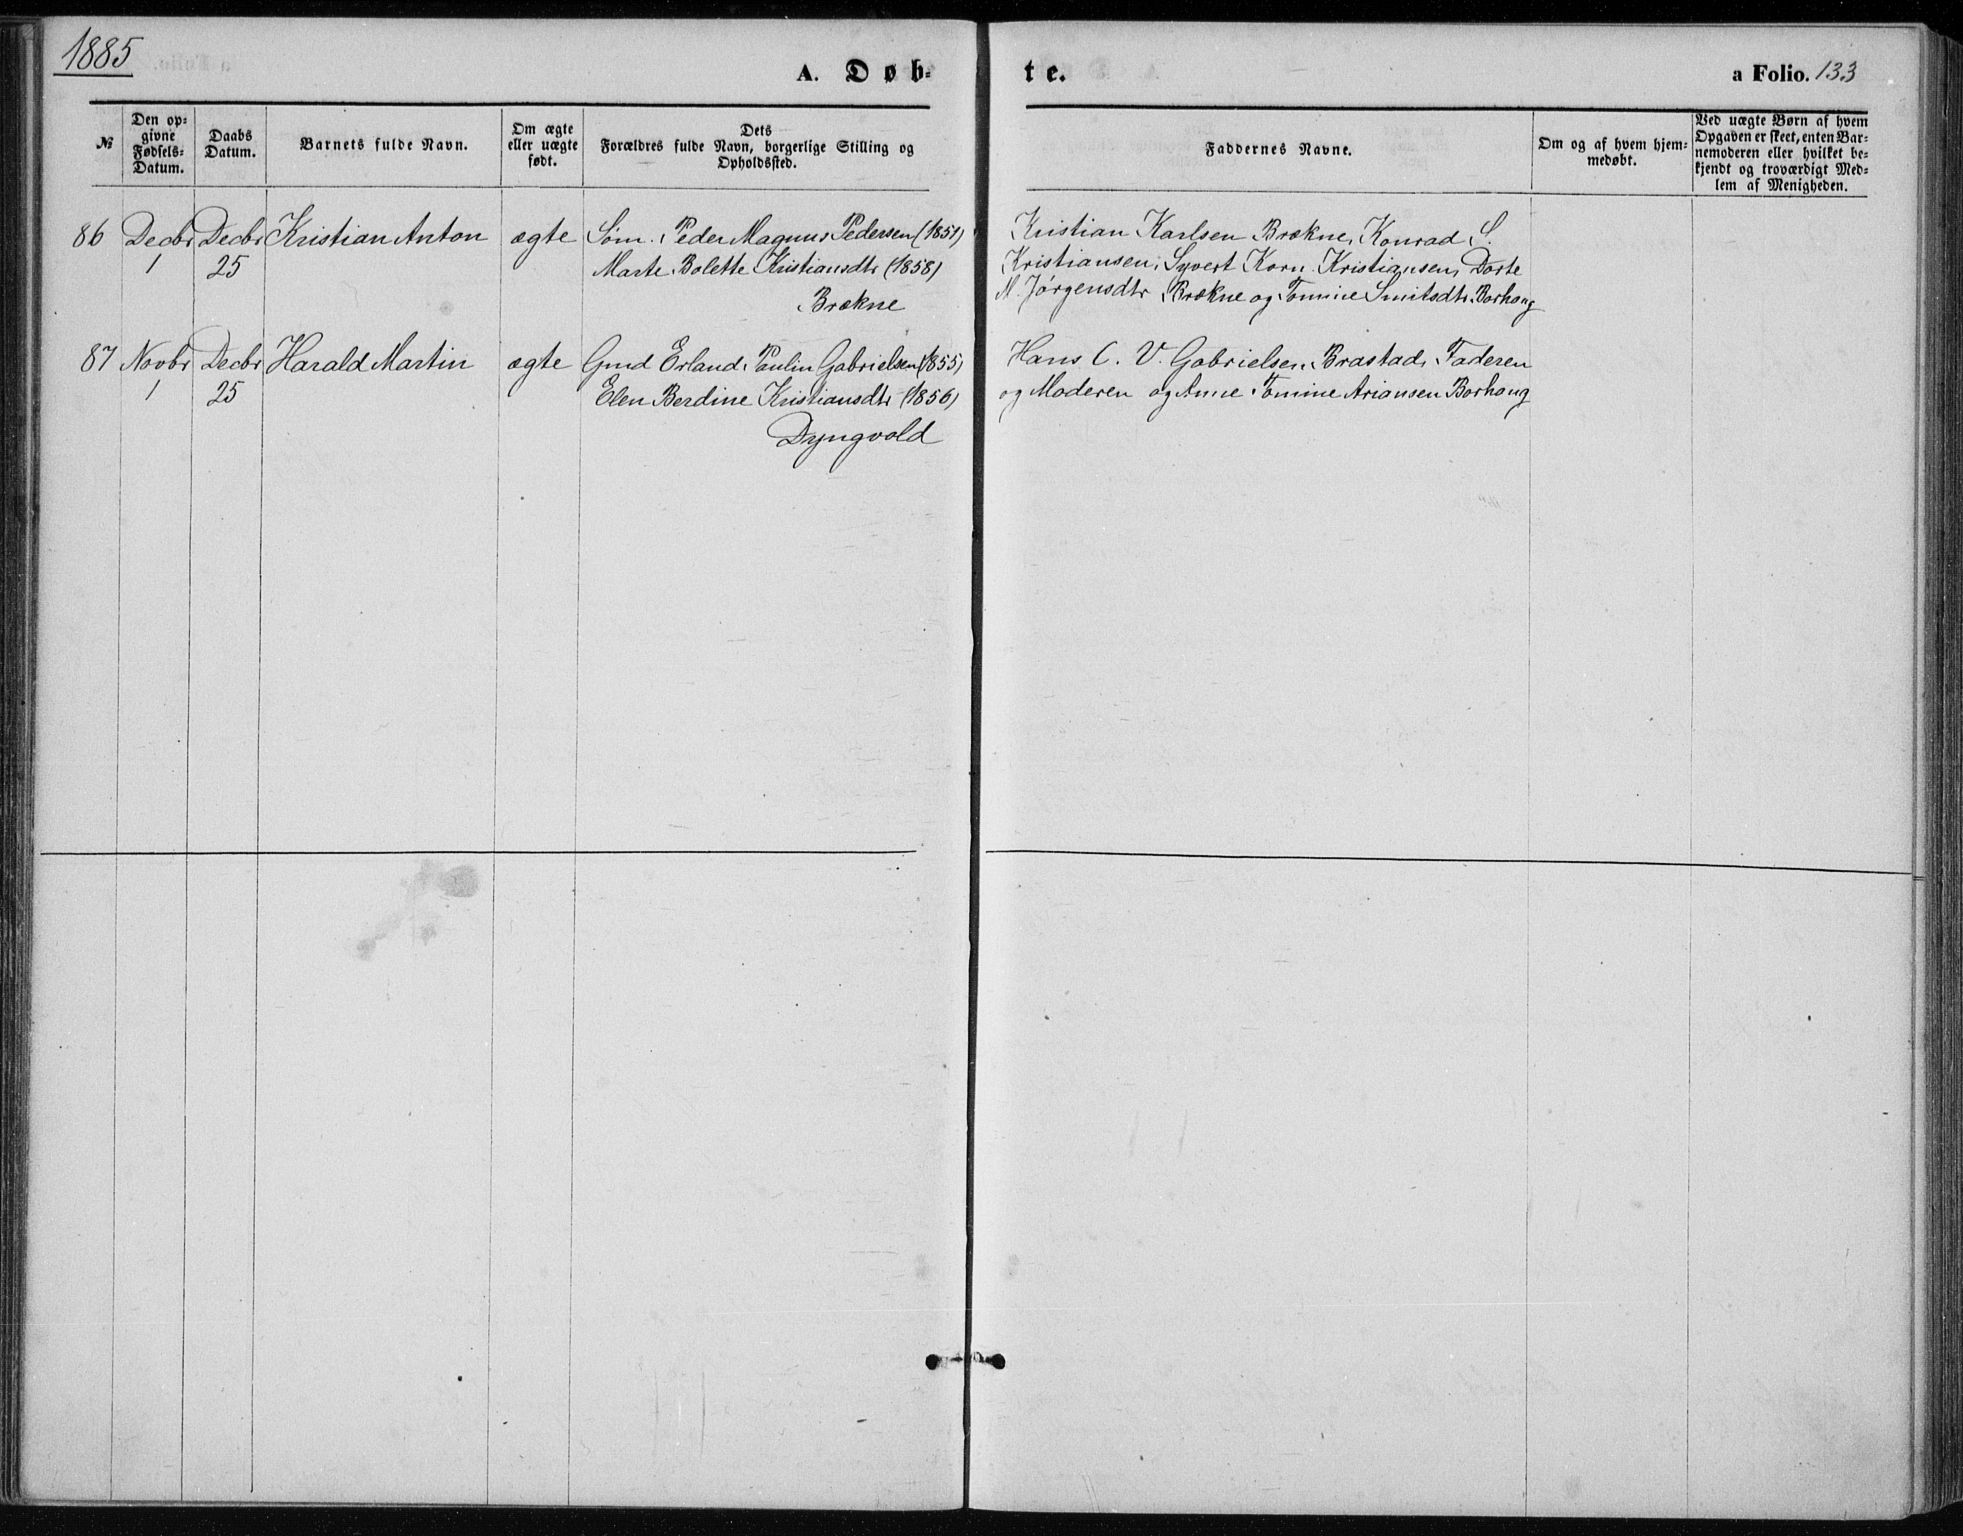 1885
A. Døb-
te.
a Folio. 133
№
Den op-
givne
Fødsels-
Datum.
Daabs
Datum.
Barnets fulde Navn.
Om ægte
eller uægte
født.
Dets
Forældres fulde Navn, borgerlige Stilling og
Opholdssted.
Faddernes Navne.
Om og af hvem hjem-
medøbt.
Ved uægte Børn af hvem
Opgaven er skeet, enten Bar-
nemoderen eller hvilket be-
kjendt og troværdigt Med-
lem af Menigheden.
86 Decbr Decbr Kristian Anton ægte Søm. Peder Magnus Pedersen (1851)
1 25 Marte Bolette Kristiansdtr (1858)
Brækne
Kristian Karlsen Brækne, Konrad S.
Kristiansen, Syvert Korn. Kristiansen, Dorte
M. Jørgensdtr Brækne og Tomine Smitsdtr Borhaug
87 Novbr Decbr Harald Martin ægte Gmd Erland Paulin Gabrielsen (1855)
1 25 Elen Berdine Kristiansdtr (1856)
Dyngvold
Hans C. V. Gabrielsen, Brastad, Faderen
og Moderen og Anne Tomine Ariansen Borhaug